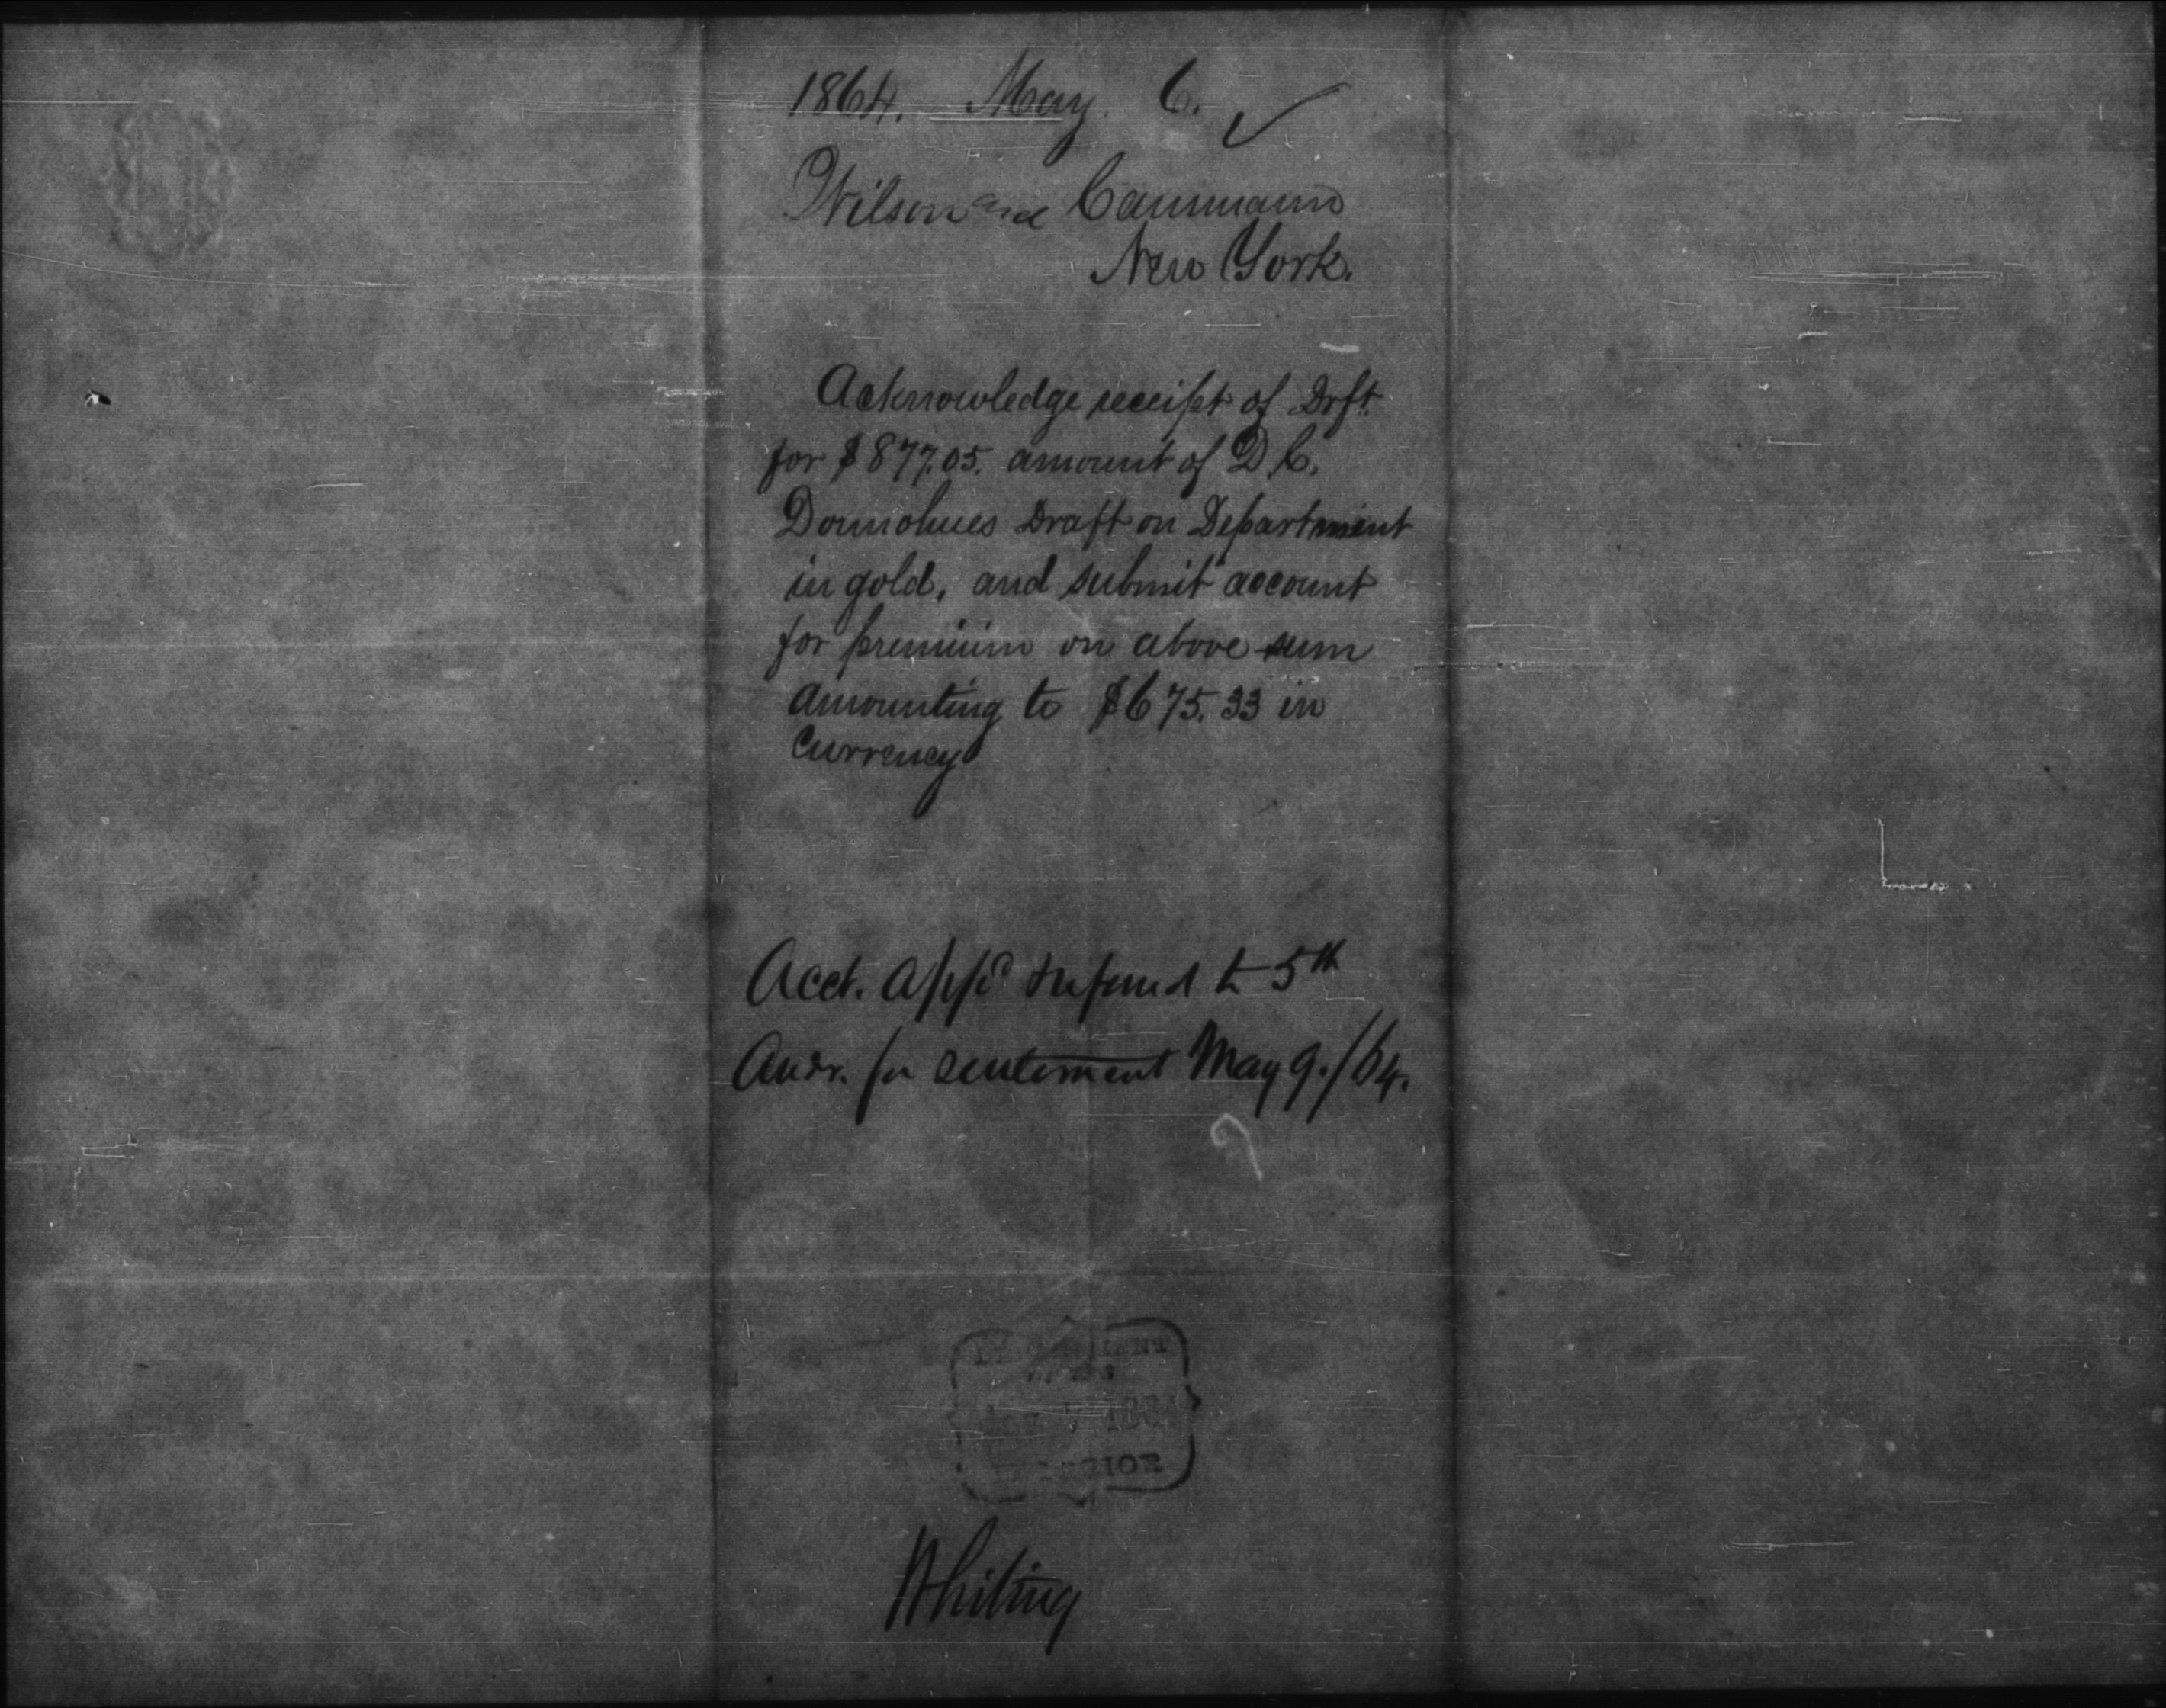 1864. May. 6. ✓
Wilson and Cammann
New York.
Acknowledge receipt of Drft.
for $877.05. amount of D. C.
Donnohues Draft on Department
in gold, and submit account
for premium on above sum
amounting to $675.33 in
Currency
Acct. app'd & referred to 5th
Audr. for settlement May 9./64.
Whiting